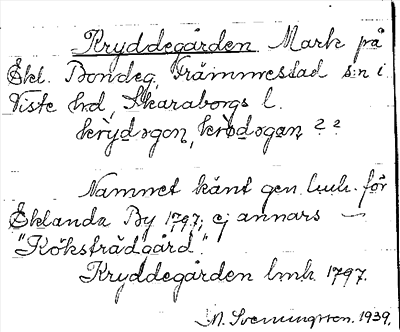 Kryddegården Mark på
Ekl. Bondeg, Främmestad s:n i
Viste hd, Skaraborgs l.
krỳdəgon, krødəgan ? ?
Namnet känt gen lmh. för
Eklanda By 1797; ej annars —
"Köksträdgård".
Kryddegården lmh. 1797.
N. Svenningsson. 1939.